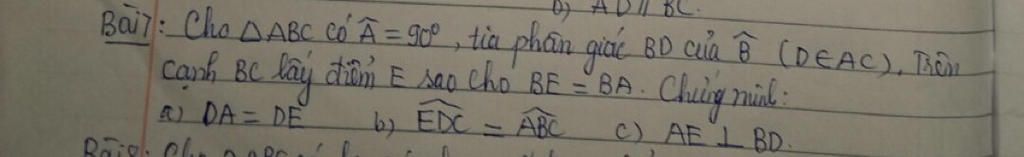 b) AD // BC.
Bài 7: Cho △ABC có Â = 90°, tia phân giác BD của B̂ (D∈AC). Trên
cạnh BC lấy điểm E sao cho BE = BA. Chứng minh:
a) DA = DE b) \widehat{EDC} = \widehat{ABC} c) AE ⊥ BD.
Bài 8: Cho △ABC